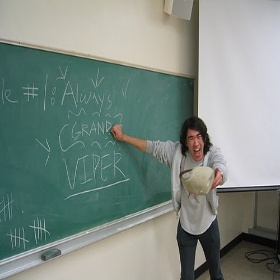 #1: Always
GRAND
VIPER